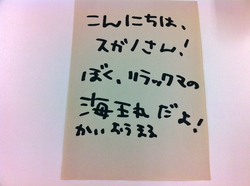 こんにちは、
スガノさん！
ぼく、リラックマの
海王丸だよ！
かいおうまる